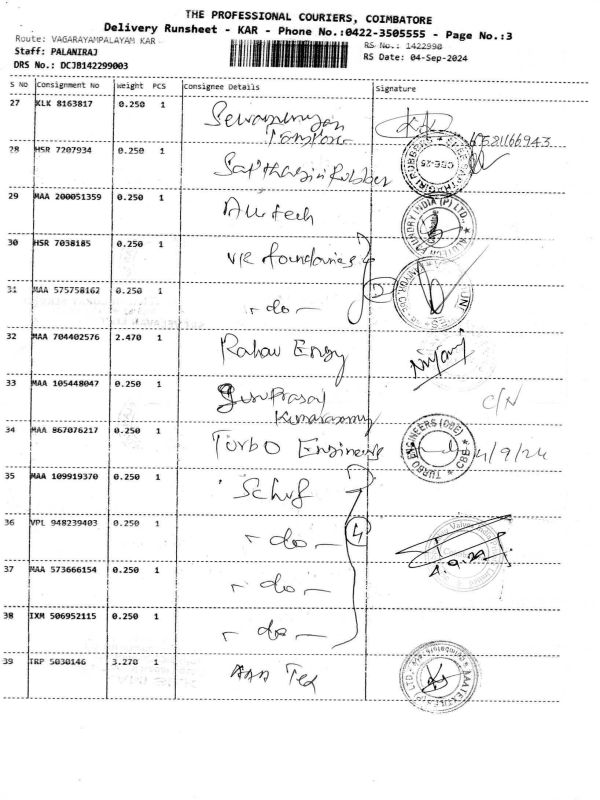 THE PROFESSIONAL COURIERS, COIMBATORE
Delivery Runsheet - KAR - Phone No.:0422-3505555 - Page No.:3
Route: VAGARAYAMPALAYAM KAR
RS No.: 1422990
Staff: PALANIRAJ
RS Date: 04-Sep-2024
DRS No.: DCJB142299003
S No Consignment No Weight PCS Consignee Details Signature
27 KLK 8163817 0.250 1
28 HSR 7207934 0.250 1 Sapthagiri Rubber
29 MAA 200051359 0.250 1
30 HSR 7038185 0.250 1 VR foundaries
31 MAA 575758162 0.250 1 - do -
32 MAA 704402576 2.470 1
33 MAA 105448047 0.250 1 C/N
34 MAA 867076217 0.250 1 Turbo Engineers TURBO ENGINEERS (CBE) * CBE * 4/9/24
35 MAA 109919370 0.250 1
36 VPL 948239403 0.250 1 - do - 4
37 MAA 573666154 0.250 1 - do -
38 IXM 506952115 0.250 1 - do -
39 TRP 5030146 3.270 1 AAA Tex